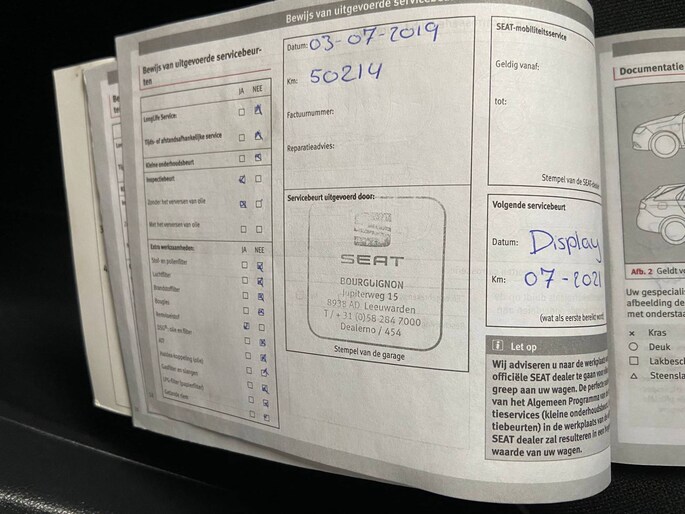 Bewijs van uitgevoerde servicebeur-
ten
JA NEE
LongLife Service:
Tijds- of afstandsafhankelijke service
Kleine onderhoudsbeurt
Inspectiebeurt
Zonder het verversen van olie
Met het verversen van olie
Extra werkzaamheden:
JA NEE
Stof- en pollenfilter
Luchtfilter
Brandstoffilter
Bougies
Remvloeistof
Bewijs van uitgevoerde servicebeur
Datum: 03-07-2019
Km: 50214
Factuurnummer:
Reparatieadvies:
Servicebeurt uitgevoerd door:
SEAT
BOURGUIGNON
Jupiterweg 15
8938 AD Leeuwarden
T / + 31 (0)58 284 7000
Dealerno / 454
Stempel van de garage
SEAT-mobiliteitsservice
Geldig vanaf:
tot:
Stempel van de SEAT-dealer
Volgende servicebeurt
Datum: Display
Km: 07-2021
(wat als eerste bereikt word
Let op
Wij adviseren u naar de werkplaat
officiële SEAT dealer te gaan voor
greep aan uw wagen. De perfecte
van het Algemeen Programma van
tieservices (kleine onderhoudsbeurt
tiebeurten) in de werkplaats van
SEAT dealer zal resulteren in een
waarde van uw wagen.
Documentatie
Afb. 2 Geldt v
Uw gespecialis
afbeelding de
met onderstaa
× Kras
Deuk
Lakbesch
Steensla